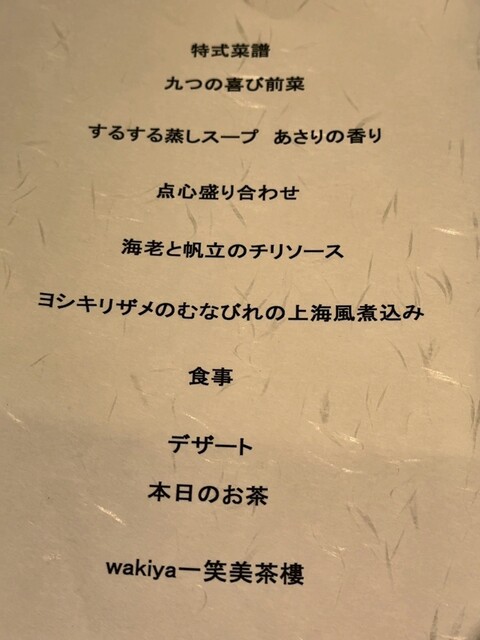 特式菜譜
九つの喜び前菜
するする蒸しスープ　あさりの香り
点心盛り合わせ
海老と帆立のチリソース
ヨシキリザメのむなびれの上海風煮込み
食事
デザート
本日のお茶
wakiya一笑美茶樓